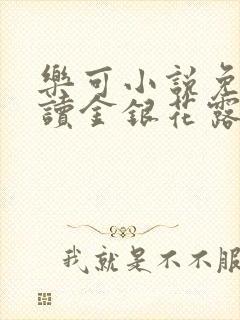 樂可小説免
讀金銀花露
我就是不不服